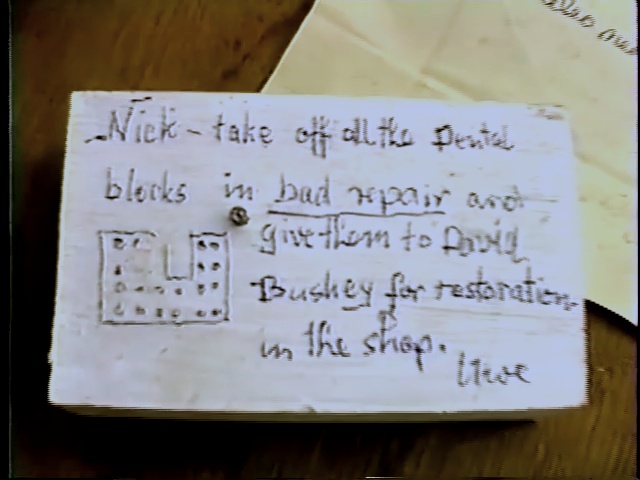 Nick - take off all the Dental
blocks in bad repair and
give them to David
Bushey for restoration
in the shop.
Uwe